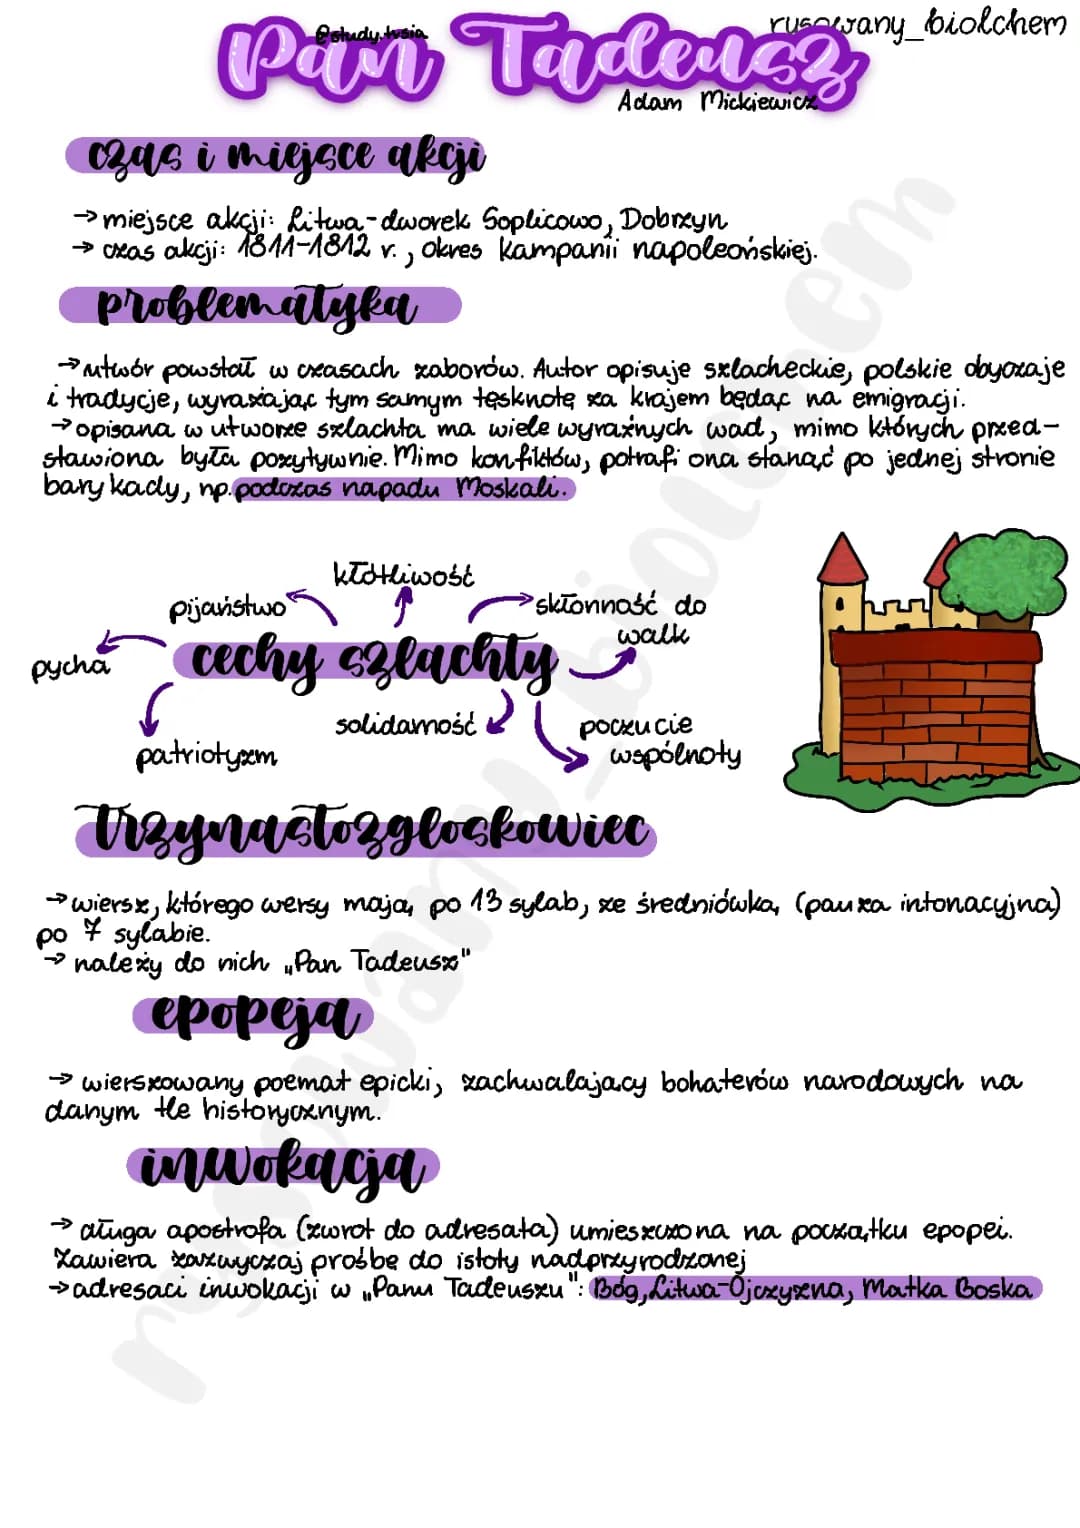 rysowany_biolchem
@study.tusia
Pan Tadeusz
Adam Mickiewicz
czas i miejsce akcji
→ miejsce akcji: Litwa - dworek Soplicowo, Dobrzyn
→ czas akcji: 1811-1812 r., okres kampanii napoleońskiej.
problematyka
→ utwór powstał w czasach zaborów. Autor opisuje szlacheckie, polskie obyczaje
i tradycje, wyrażając tym samym tęsknotę za krajem będąc na emigracji.
→ opisana w utworze szlachta ma wiele wyraźnych wad, mimo których przed-
stawiona była pozytywnie. Mimo konfliktów, potrafi ona stanąć po jednej stronie
barykady, np. podczas napadu Moskali.
kłótliwość
pijaństwo
skłonność do
walk
pycha
cechy szlachty
solidarność
poczucie
wspólnoty
patriotyzm
trzynastozgłoskowiec
→ wiersz, którego wersy mają po 13 sylab, ze średniówką (pauza intonacyjna)
po 7 sylabie.
→ należy do nich „Pan Tadeusz"
epopeja
→ wierszowany poemat epicki, zachwalający bohaterów narodowych na
danym tle historycznym.
inwokacja
→ długa apostrofa (zwrot do adresata) umieszczona na początku epopei.
Zawiera zazwyczaj prośbę do istoty nadprzyrodzonej
→ adresaci inwokacji w „Panu Tadeuszu": Bóg, Litwa-Ojczyzna, Matka Boska
rysowany_biolchem